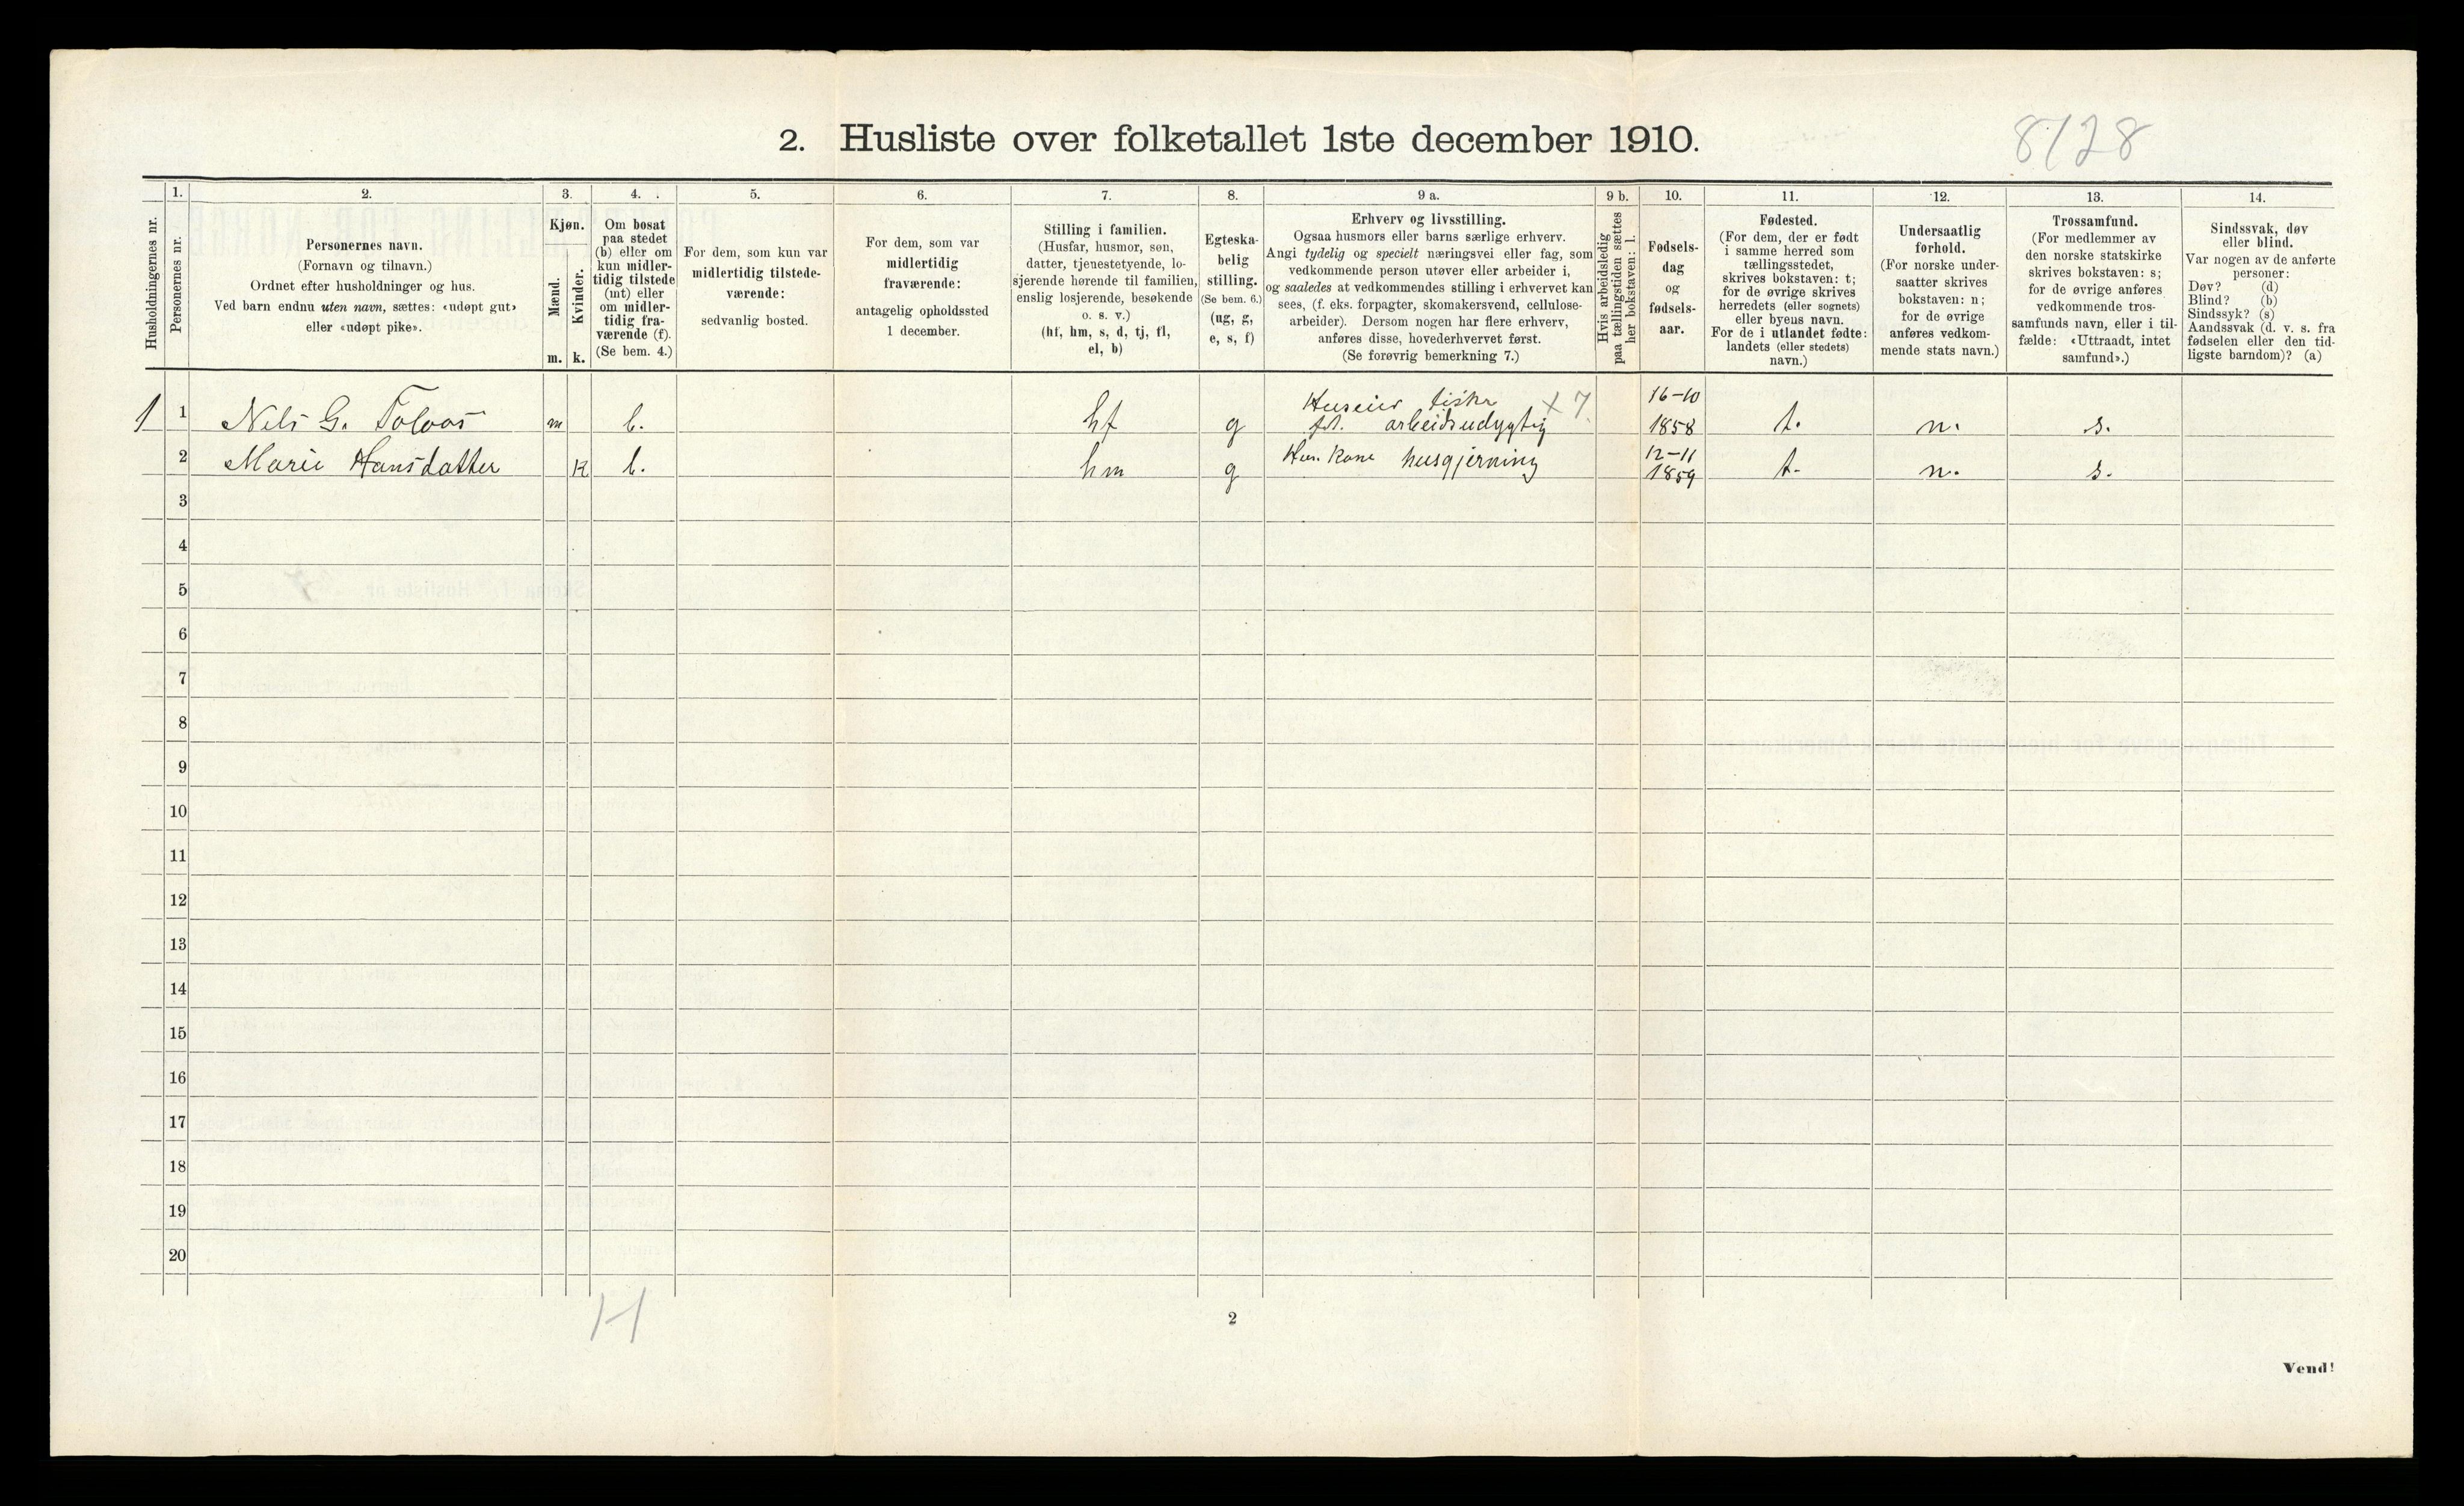 2. Husliste over folketallet 1ste december 1910.
8/28
Husholdningernes nr.
1.
Personernes nr.
2.
Personernes navn.
(Fornavn og tilnavn.)
Ordnet efter husholdninger og hus.
Ved barn endnu uten navn, sættes: «udøpt gut»
eller «udøpt pike».
3.
Kjøn.
Mænd.
Kvinder.
m. k.
4.
Om bosat
paa stedet
(b) eller om
kun midler-
tidig tilstede
(mt) eller
om midler-
tidig fra-
værende (f).
(Se bem. 4.)
5.
For dem, som kun var
midlertidig tilstede-
værende:
sedvanlig bosted.
6.
For dem, som var
midlertidig
fraværende:
antagelig opholdssted
1 december.
7.
Stilling i familien.
(Husfar, husmor, søn,
datter, tjenestetyende, lo-
sjerende hørende til familien,
enslig losjerende, besøkende
o. s. v.)
(hf, hm, s, d, tj, fl,
el, b)
8.
Egteska-
belig
stilling.
(Se bem. 6.)
(ug, g,
e, s, f)
9 a.
Erhverv og livsstilling.
Ogsaa husmors eller barns særlige erhverv.
Angi tydelig og specielt næringsvei eller fag, som
vedkommende person utøver eller arbeider i,
og saaledes at vedkommendes stilling i erhvervet kan
sees, (f. eks. forpagter, skomakersvend, cellulose-
arbeider). Dersom nogen har flere erhverv,
anføres disse, hovederhvervet først.
(Se forøvrig bemerkning 7.)
9 b.
Hvis arbeidsledig
paa tællingstiden sættes
her bokstaven: l.
10.
Fødsels-
dag
og
fødsels-
aar.
11.
Fødested.
(For dem, der er født
i samme herred som
tællingsstedet,
skrives bokstaven: t;
for de øvrige skrives
herredets (eller sognets)
eller byens navn.
For de i utlandet fødte:
landets (eller stedets)
navn.)
12.
Undersaatlig
forhold.
(For norske under-
saatter skrives
bokstaven: n;
for de øvrige
anføres vedkom-
mende stats navn.)
13.
Trossamfund.
(For medlemmer av
den norske statskirke
skrives bokstaven: s;
for de øvrige anføres
vedkommende tros-
samfunds navn, eller i til-
fælde: «Uttraadt, intet
samfund».)
14.
Sindssvak, døv
eller blind.
Var nogen av de anførte
personer:
Døv? (d)
Blind? (b)
Sindssyk? (s)
Aandssvak (d. v. s. fra
fødselen eller den tid-
ligste barndom)? (a)
Huseier fisker x 7. 16-10
1 1 Nils G. m b. hf g arbeidsudygtig 1858 t. n. s.
12-11
2 Marie Hansdatter k b. hm g Kone husgjerning 1859 t. n. s.
3
4
5
6
7
8
9
10
11
12
13
14
15
16
17
18
19
20
H
2
Vend!